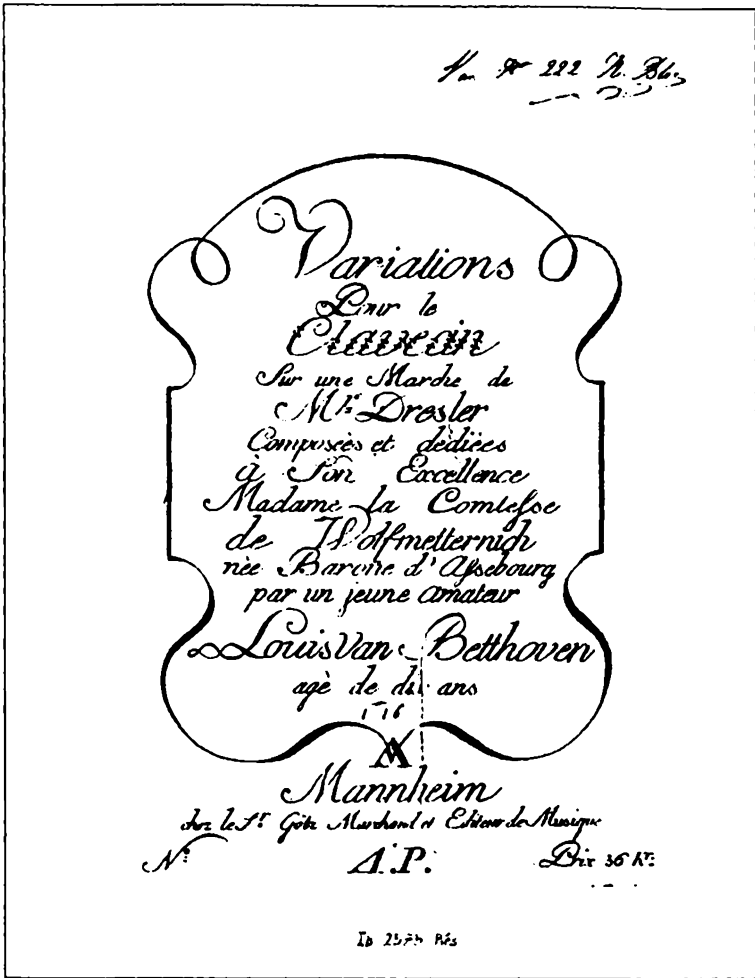 222
Variations
Pour le
Clavecin
Sur une Marche de
Mr. Dresler
Composées et dédiées
à Son Excellence
Madame la Comtesse
de Wolfmetternich
née Barone d'Assebourg
par un jeune amateur
Louis Van Betthoven
agè de dix ans
Mannheim
chez le Sr. Götz Marchand et Editeur de Musique
No. A.P. Prix 36 Kr: